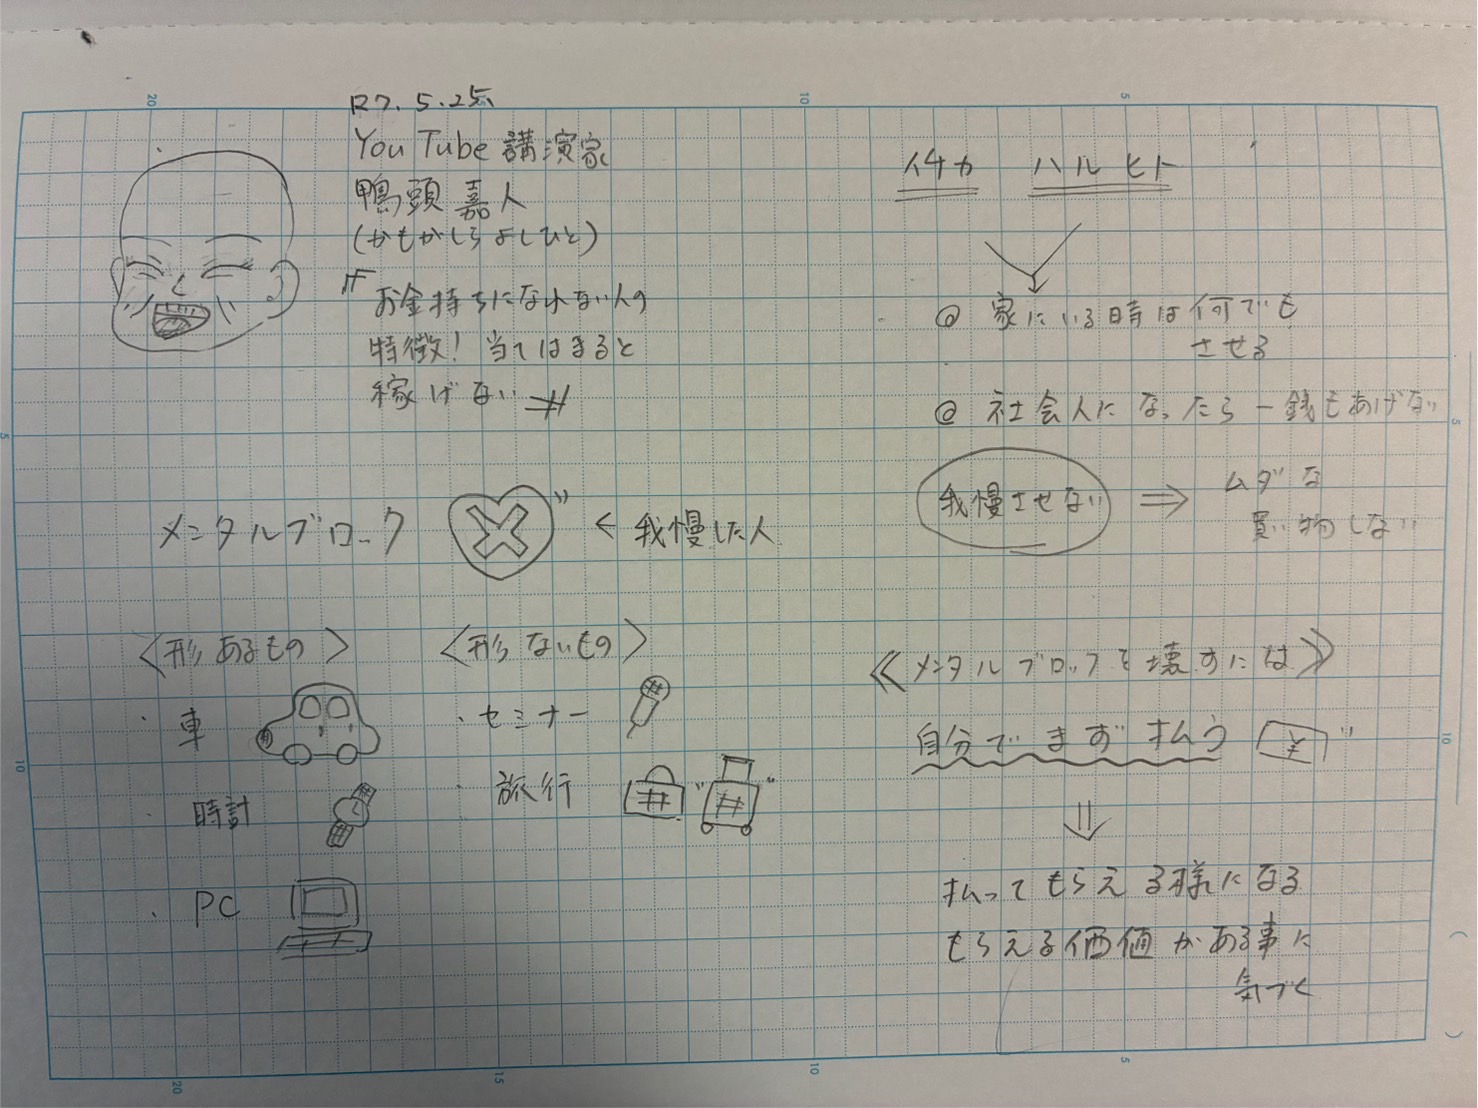 R7.5.25
YouTube 講演家
鴨頭 嘉人
(かもがしら よしひと)
『お金持ちになれない人の
特徴! 当てはまると
稼げない』
メンタルブロック
← 我慢した人
<形あるもの>
・車
・時計
・PC
<形ないもの>
・セミナー
・旅行
イチカ ハルヒト
◎ 家にいる時は何でも
させる
◎ 社会人になったら一銭もあげない
我慢させない ⇒ ムダな
買い物しない
≪メンタルブロックを壊すには≫
自分でまず払う ¥
⇓
払ってもらえる様になる
もらえる価値がある事に
気づく
20
15
10
5
5
10
5
10
20
15
10
5